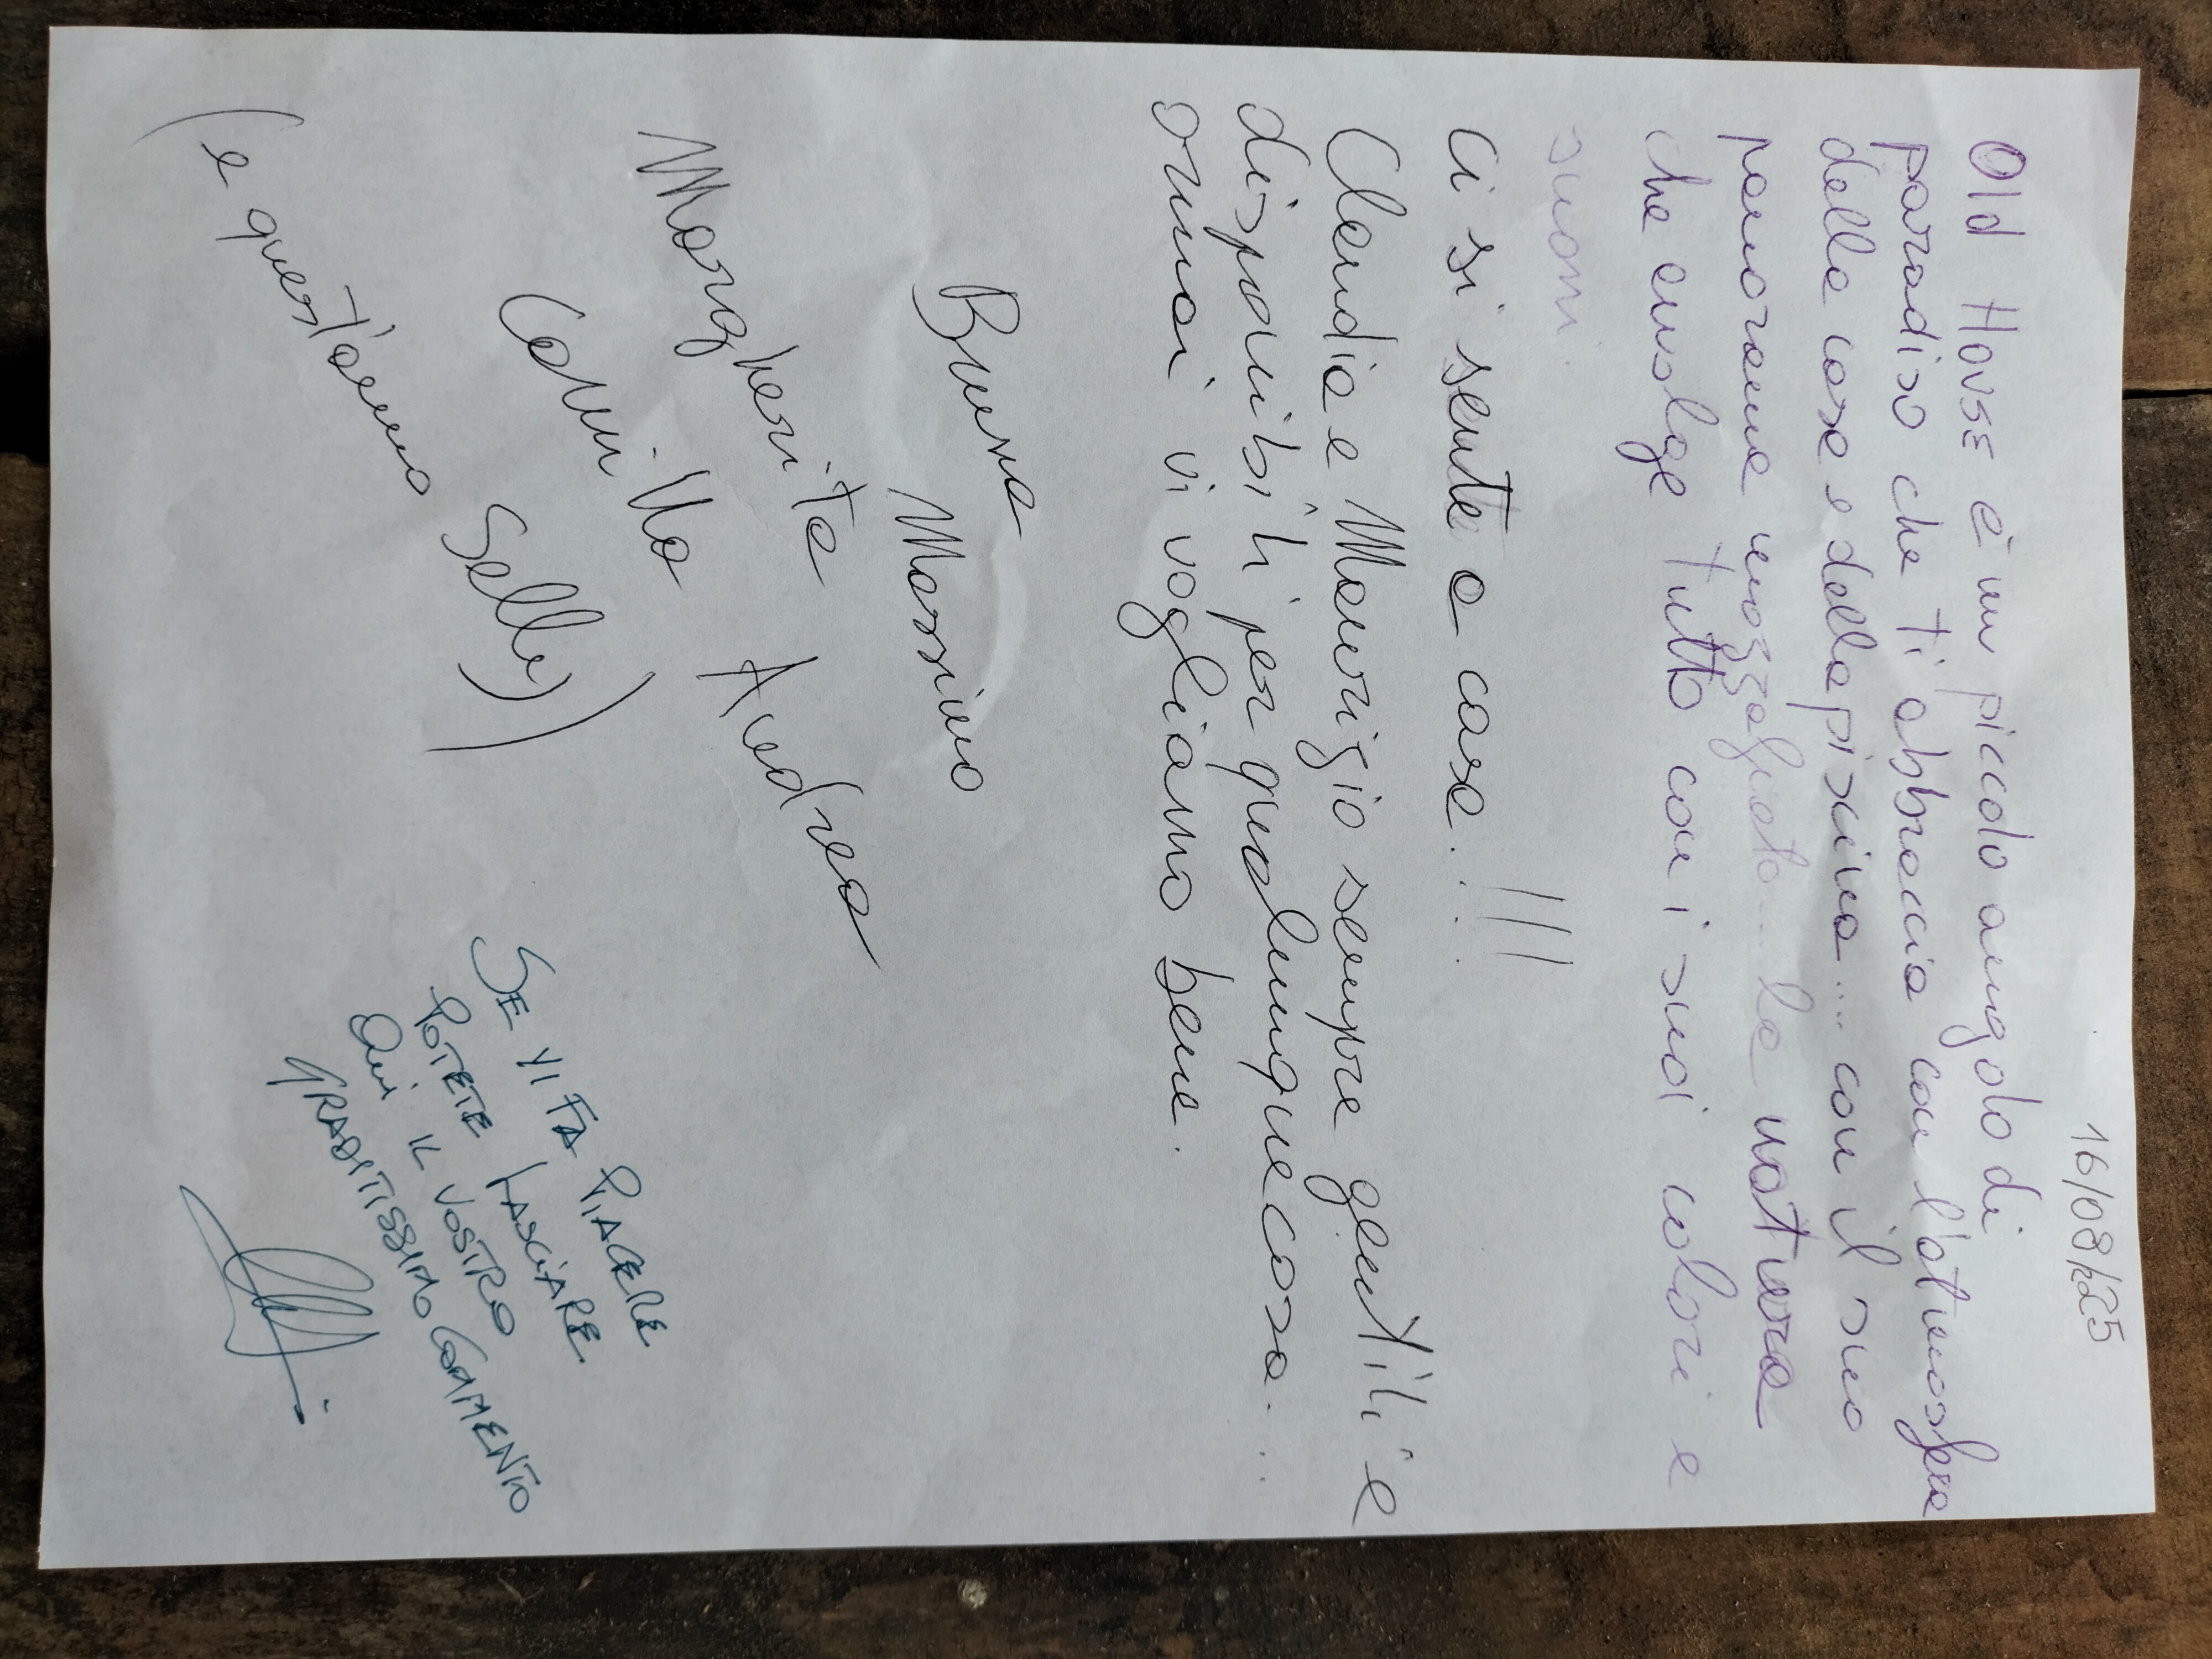 16/08/25
Old House è un piccolo angolo di
paradiso che ti abbraccia con l'atmosfera
della casa e della piscina... con il suo
panorama mozzafiato... la natura
che avvolge tutto con i suoi colori e
suoni.
Ci si sente a casa!!!
Claudia e Maurizio sempre gentili e
disponibili per qualunque cosa...
ormai vi vogliamo bene.
Bruna Massimo
Margherita Andrea
Camilla
(e quest'anno Selly)
SE VI FA PIACERE
POTETE LASCIARE
QUI IL VOSTRO
GRADITISSIMO COMMENTO